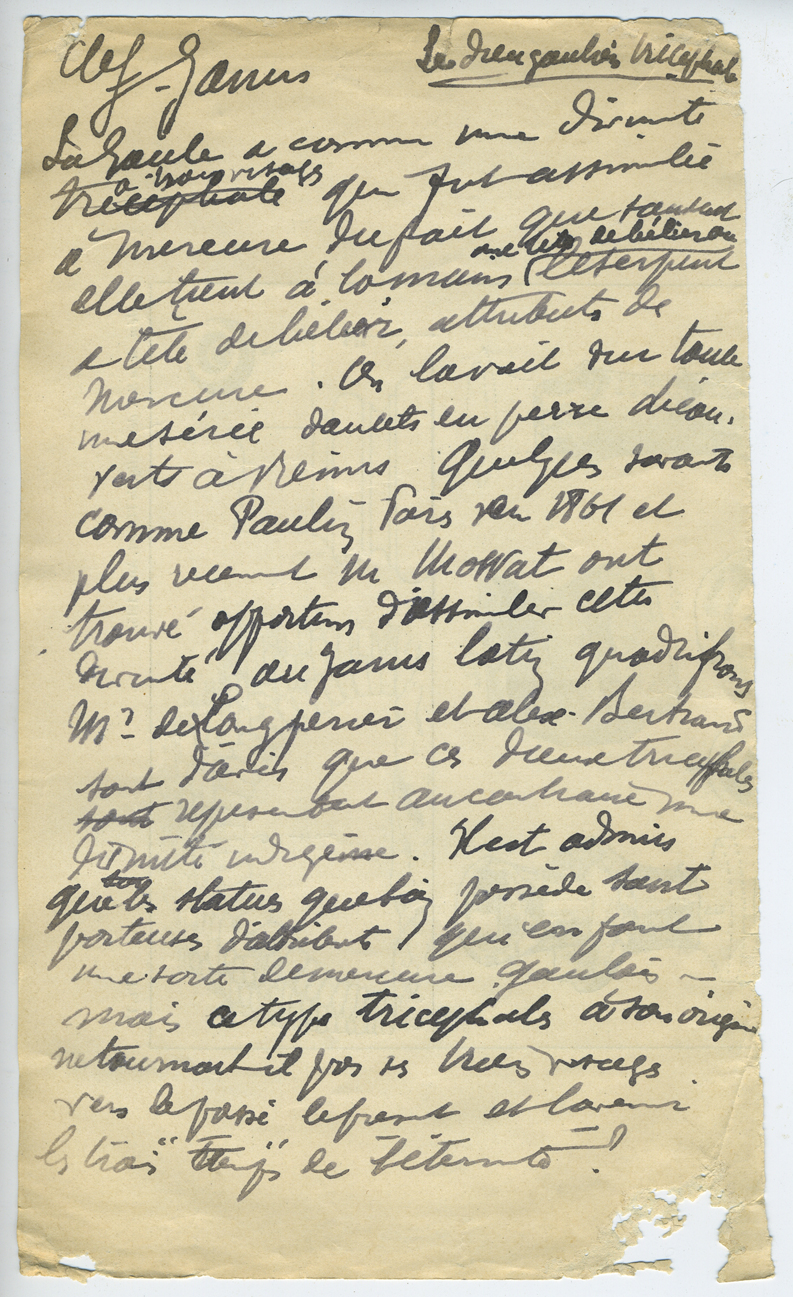 Clef - Janus
Les dieux gaulois tricéphales
La Gaule a comme une divinité
à trois visages
tricéphale qui fut assimilée
à Mercure du fait que souvent
une tête de bélier ou
elle tient à la main le serpent
a tête de bélier, attributs de
Mercure. On la voit sur toute
une série d'autels en pierre décou-
verts à Reims Quelques savants
comme Paulin Paris en 1861 et
plus récemment M Mowat ont
trouvé opportun d'assimiler cette
divinité au Janus latin quadrifrons
Mr de Longperier et alex. Bertrand
sont d'avis que ces dieux tricéphales
sont representent au contraire une
divinité indigène. Il est admis
que les statues que l'on possède sont
porteuses d'attributs qui en font
une sorte de mercure gaulois -
mais ce type tricephale à son origine
ne tournait il pas ses trois visages
vers le passé le present et l'avenir
les trois "temps" de l'éternité ?